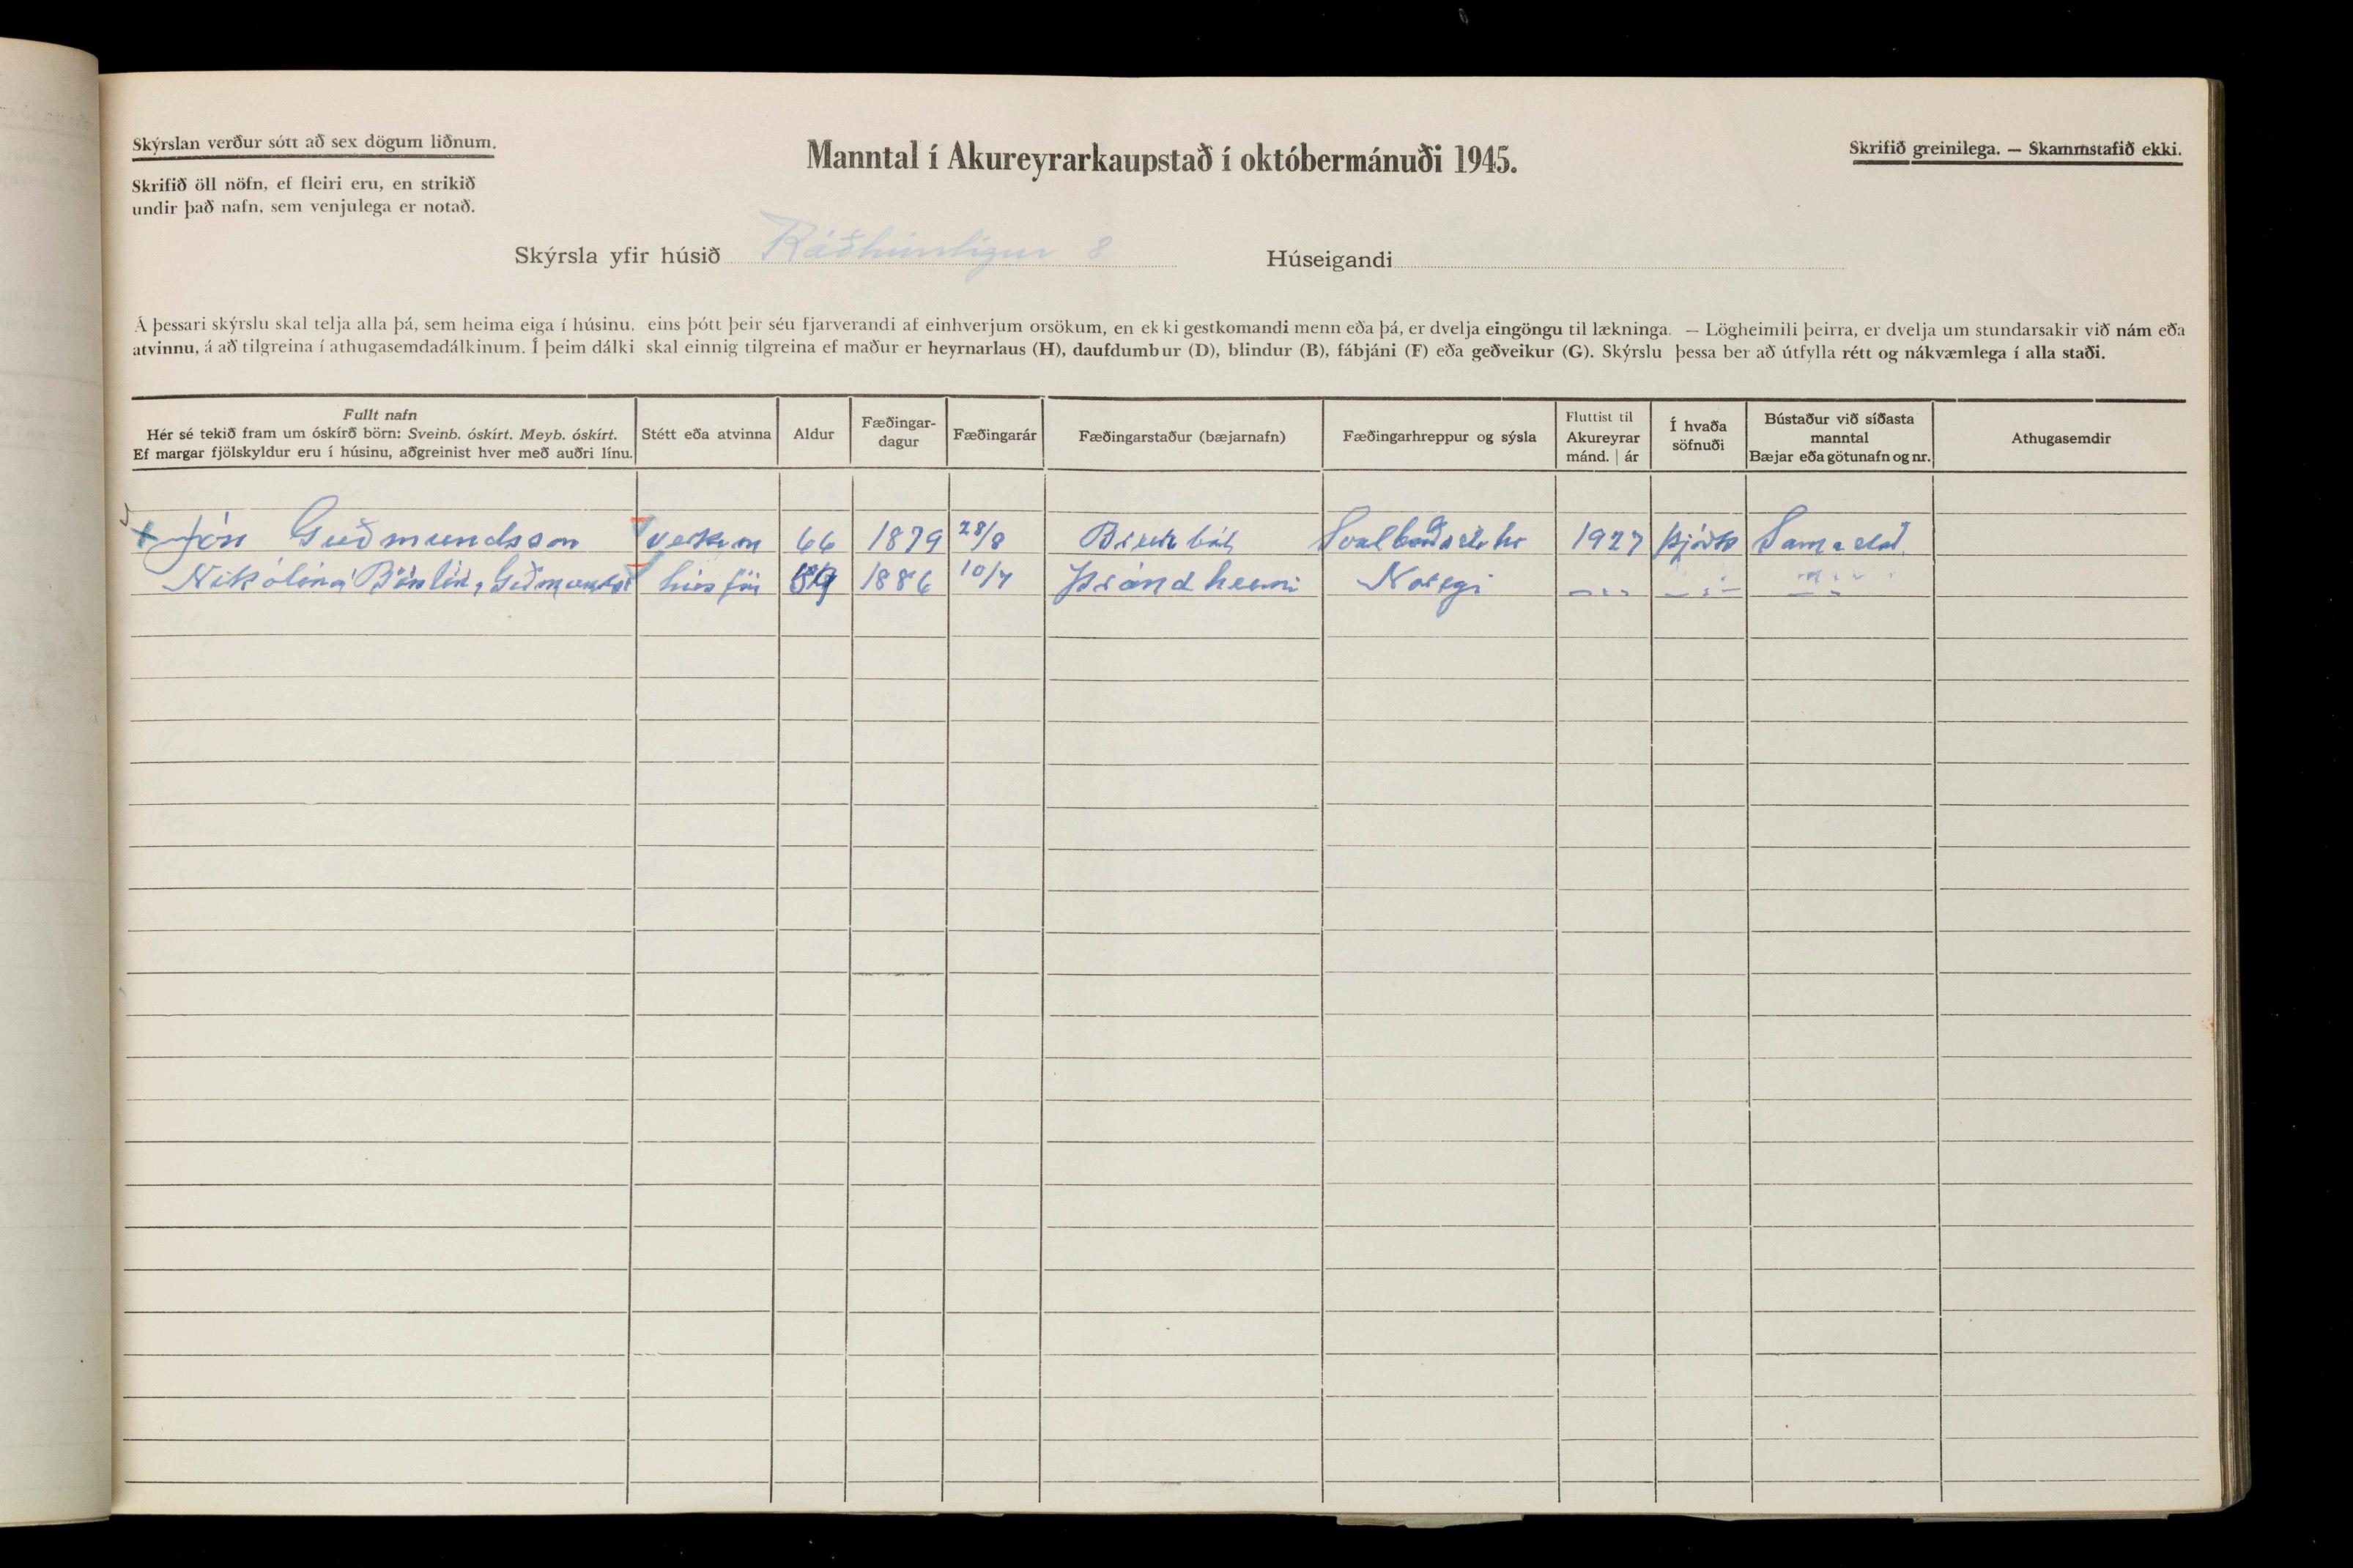 Skýrslan verður sótt að sex dögum liðnum.
Skrifið öll nöfn, ef fleiri eru, en strikið
undir það nafn, sem venjulega er notað.
Manntal í Akureyrarkaupstað í októbermánuði 1945.
Skrifið greinilega. — Skammstafið ekki.
Skýrsla yfir húsið Ráðhústígur 8 Húseigandi
Á þessari skýrslu skal telja alla þá, sem heima eiga í húsinu, eins þótt þeir séu fjarverandi af einhverjum orsökum, en ekki gestkomandi menn eða þá, er dvelja eingöngu til lækninga. — Lögheimili þeirra, er dvelja um stundarsakir við nám eða
atvinnu, á að tilgreina í athugasemdadálkinum. Í þeim dálki skal einnig tilgreina ef maður er heyrnarlaus (H), daufdumbur (D), blindur (B), fábjáni (F) eða geðveikur (G). Skýrslu þessa ber að útfylla rétt og nákvæmlega í alla staði.
Fullt nafn
Hér sé tekið fram um óskírð börn: Sveinb. óskírt. Meyb. óskírt.
Ef margar fjölskyldur eru í húsinu, aðgreinist hver með auðri línu.
Stétt eða atvinna
Aldur
Fæðingar-
dagur
Fæðingarár
Fæðingarstaður (bæjarnafn)
Fæðingarhreppur og sýsla
Fluttist til
Akureyrar
mánd. | ár
Í hvaða
söfnuði
Bústaður við síðasta
manntal
Bæjar eða götunafn og nr.
Athugasemdir
Jón Guðmundsson verkam 66 1879 28/8 1927 Þjóðk Sama stað
Nikólína 1886 10/7 Þrándheimi Noregi